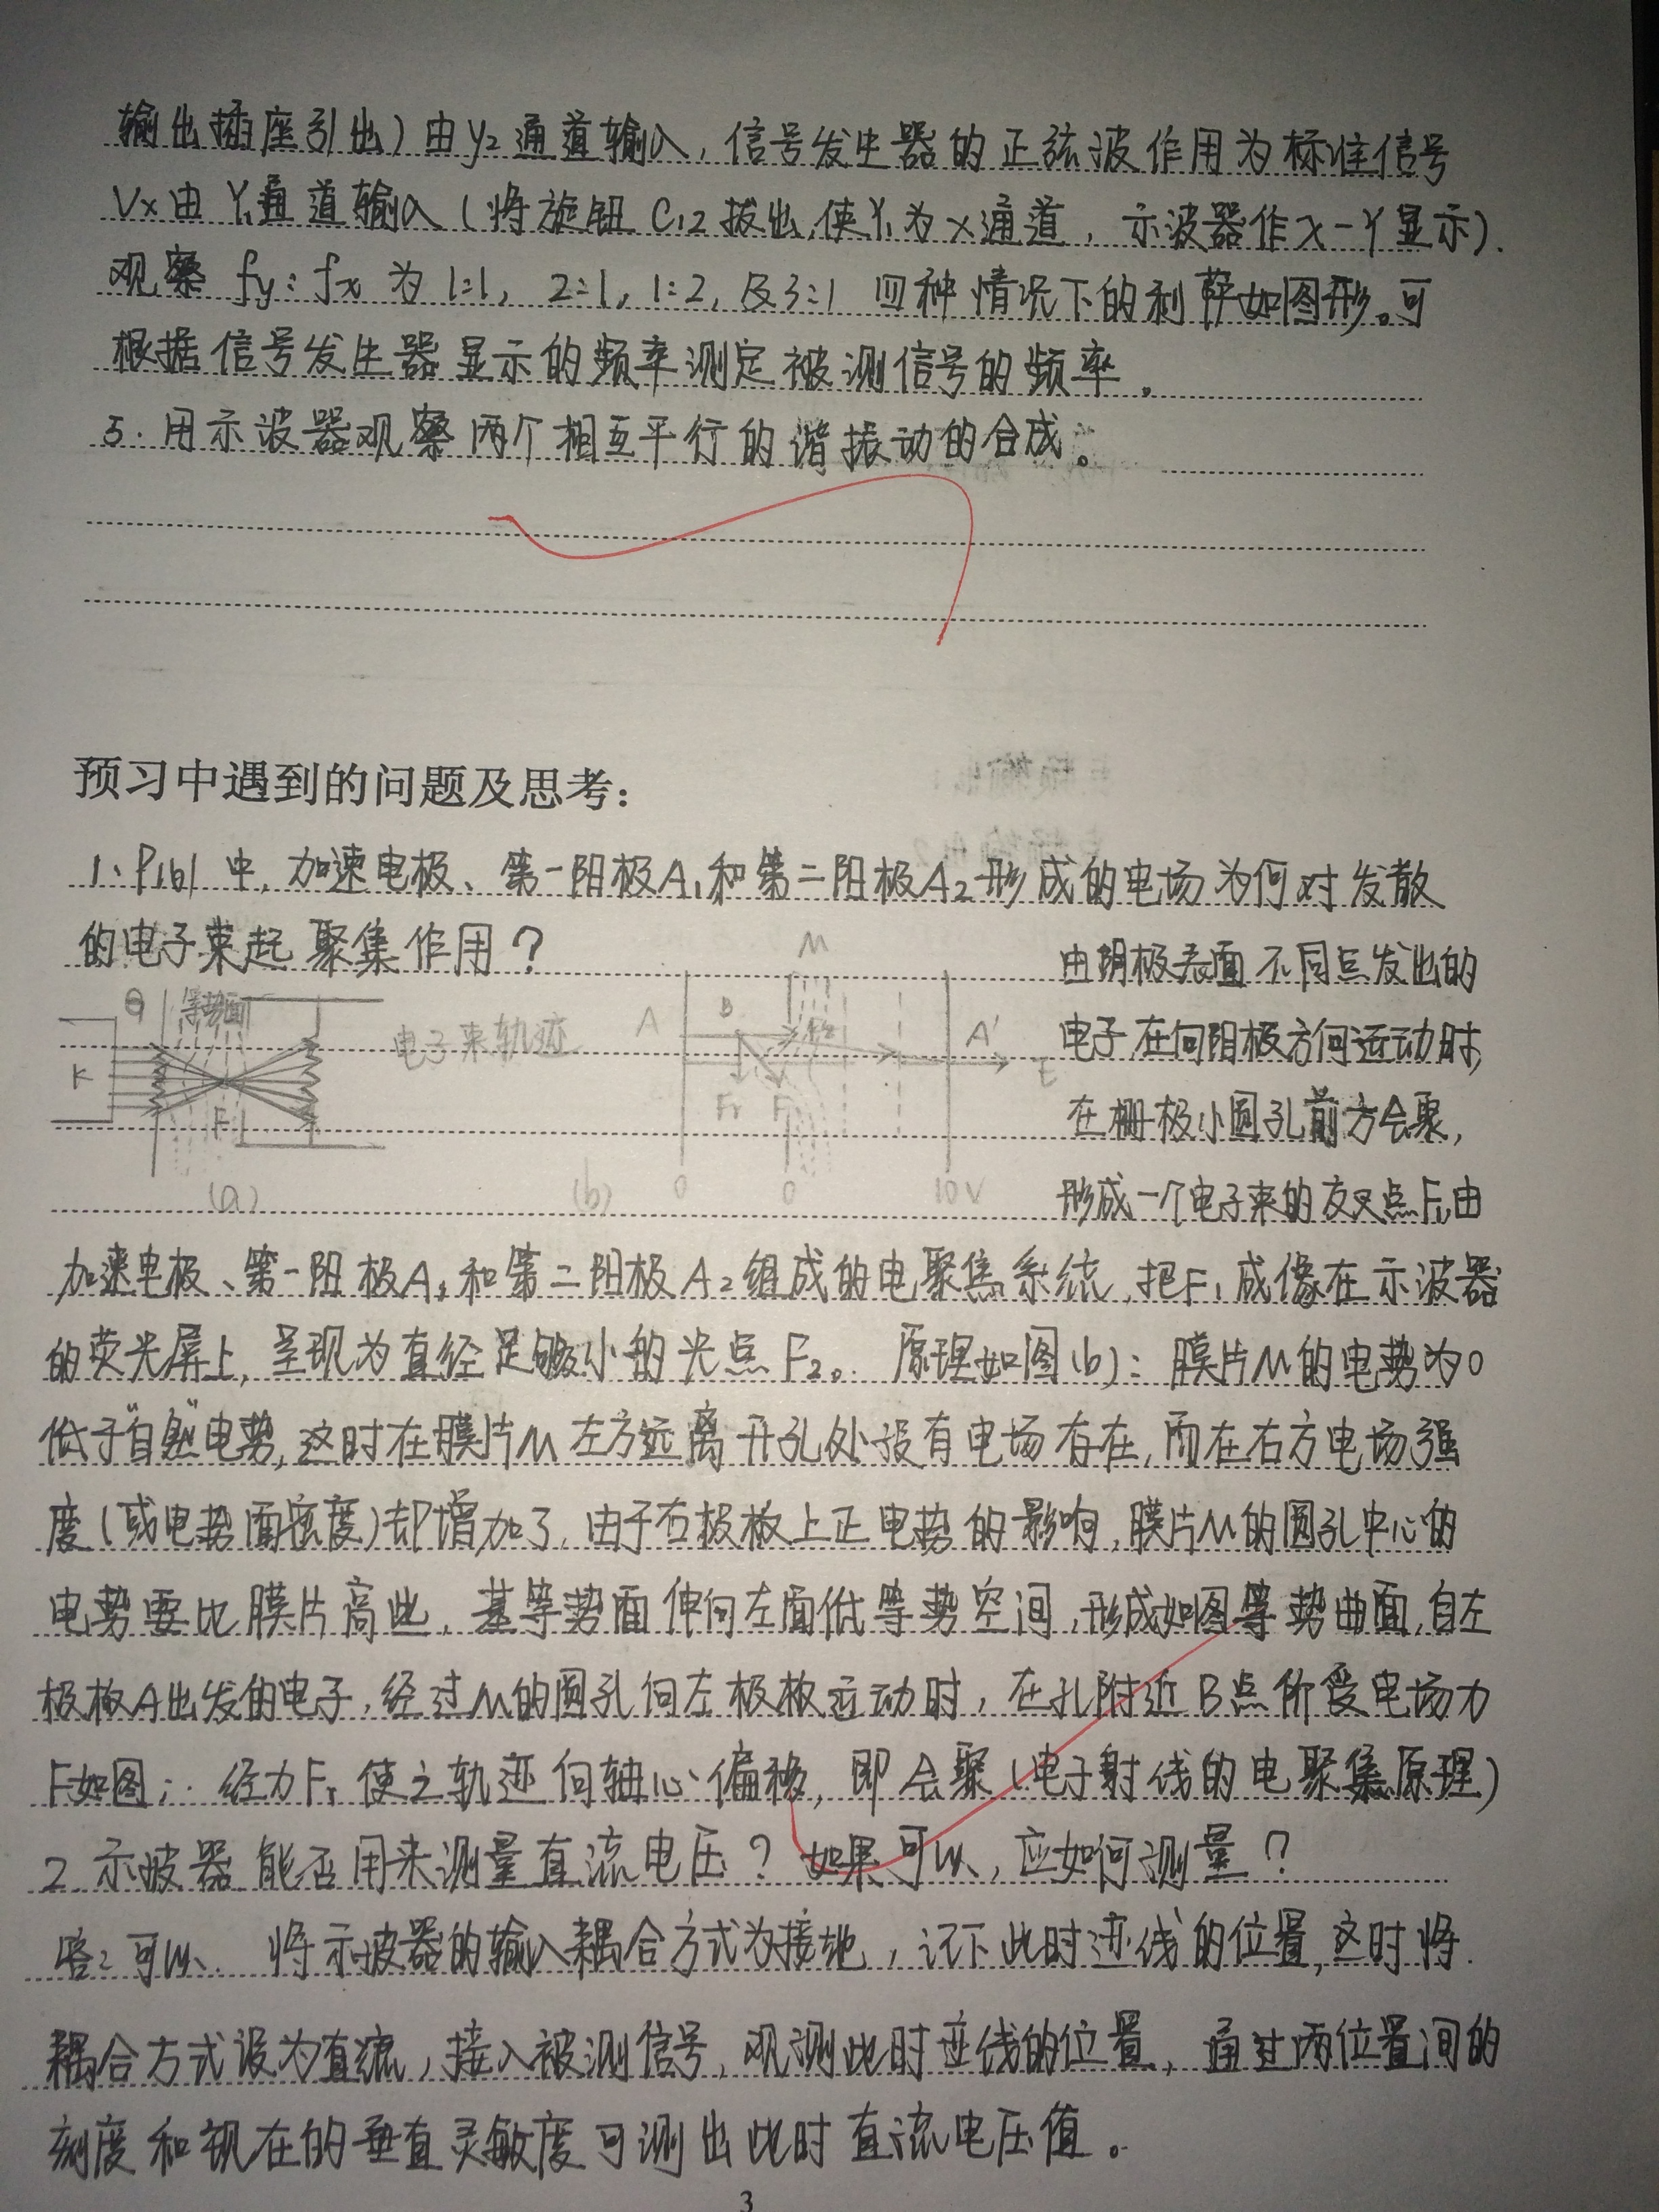 输出插座引出）由y₂通道输入，信号发生器的正弦波作用为标准信号
Vx由Y₁通道输入（将旋钮C12拔出，使Y₁为X通道，示波器作X-Y显示）.
观察 fy：fx 为 1:1，2:1，1:2，及3:1 四种情况下的利萨如图形。可
根据信号发生器显示的频率测定被测信号的频率。
5.用示波器观察两个相互平行的谐振动的合成。
预习中遇到的问题及思考：
1、P161中，加速电极、第一阳极A₁和第二阳极A₂形成的电场为何对发散
的电子束起聚集作用？
M
由阴极表面不同点发出的
等势面
电子束轨迹
A
B
A'
电子在向阳极方向运动时，
K
F₁
Fr
F
E
在栅极小圆孔前方会聚，
(a)
(b)
0
0
10V
形成一个电子束的交叉点F₁由
加速电极、第一阳极A₁和第二阳极A₂组成的电聚焦系统，把F₁成像在示波器
的荧光屏上，呈现为直径足够小的光点F₂。原理如图(b)：膜片M的电势为0
低于"自然"电势，这时在膜片M左方远离开孔处没有电场存在，而在右方电场强
度（或电势面密度）却增加了，由于右极板上正电势的影响，膜片M的圆孔中心的
电势要比膜片高些，基等势面伸向左面低等势空间，形成如图等势曲面，自左
极板A出发的电子，经过M的圆孔向左极板运动时，在孔附近B点所受电场力
F如图；径力Fr使之轨迹向轴心偏移，即会聚（电子射线的电聚集原理）
2.示波器能否用来测量直流电压？如果可以，应如何测量？
答：可以、将示波器的输入耦合方式为接地，记下此时迹线的位置，这时将
耦合方式设为直流，接入被测信号，观测此时迹线的位置，通过两位置间的
刻度和现在的垂直灵敏度可测出此时直流电压值。
3